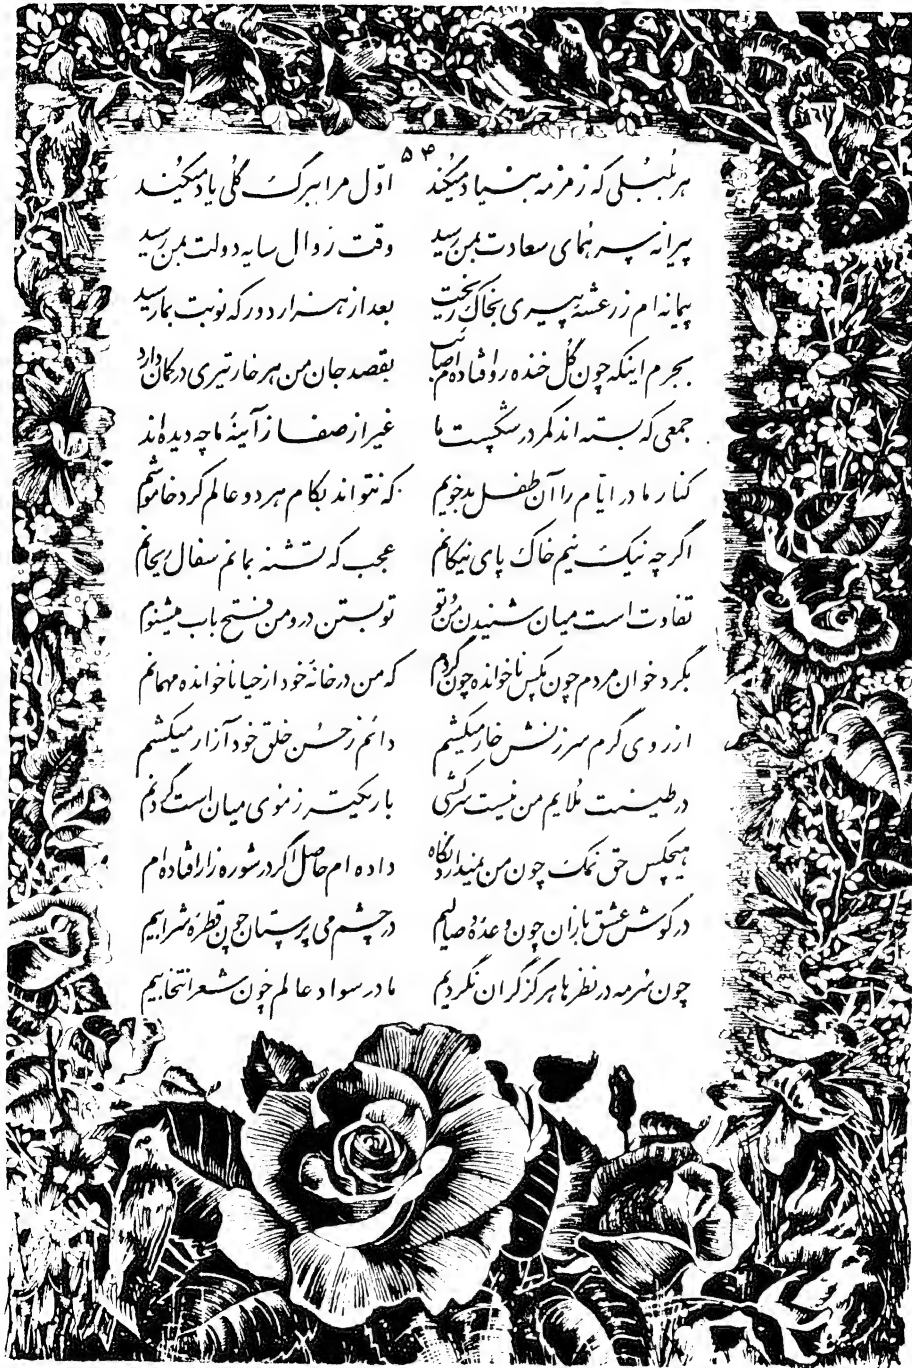 ۵۴
هر بلبلی که زمزمه بنیاد میکند اوّل مرا ببرگ گلی یاد میکند
پیرانه سر همای سعادت بمن رسید وقت زوال سایه دولت بمن رسید
پیمانه ام ز رعشه پیری بخاک ریخت بعد از هزار دور که نوبت بما رسید
بجرم اینکه چون گل خنده رو افتاده ام صائب بقصد جان من هر خار تیری در کمان دارد
جمعی که بسته اند کمر در شکست ما غیر از صفا ز آینهٔ ما چه دیده اند
کنار مادر ایّام را آن طفل بدخویم که نتواند بکام هر دو عالم کرد خاموشم
اگر چه نیک نیم خاک پای نیکانم عجب که تشنه بمانم سفال ریحانم
تفاوت است میان شنیدن من و تو تو بستن در و من فتح باب میشنوم
بگرد خوان مردم چون مگس ناخوانده چون گردم که من در خانهٔ خود از حیا ناخوانده مهمانم
از روی گرم سرزنش خار میکشم دائم ز حسن خلق خود آزار میکشم
در طینت ملایم من نیست سرکشی باریکتر ز موی میان است گردنم
هیچکس حق نمک چون من نمیدارد نگاه داده ام حاصل اگر در شوره زار افتاده ام
در گوش عشق بازان چون وعدهٔ وصالیم در چشم می پرستان چون قطرهٔ شرابیم
چون سرمه در نظرها هرگز گران نگردیم ما در سواد عالم چون شعر انتخابیم